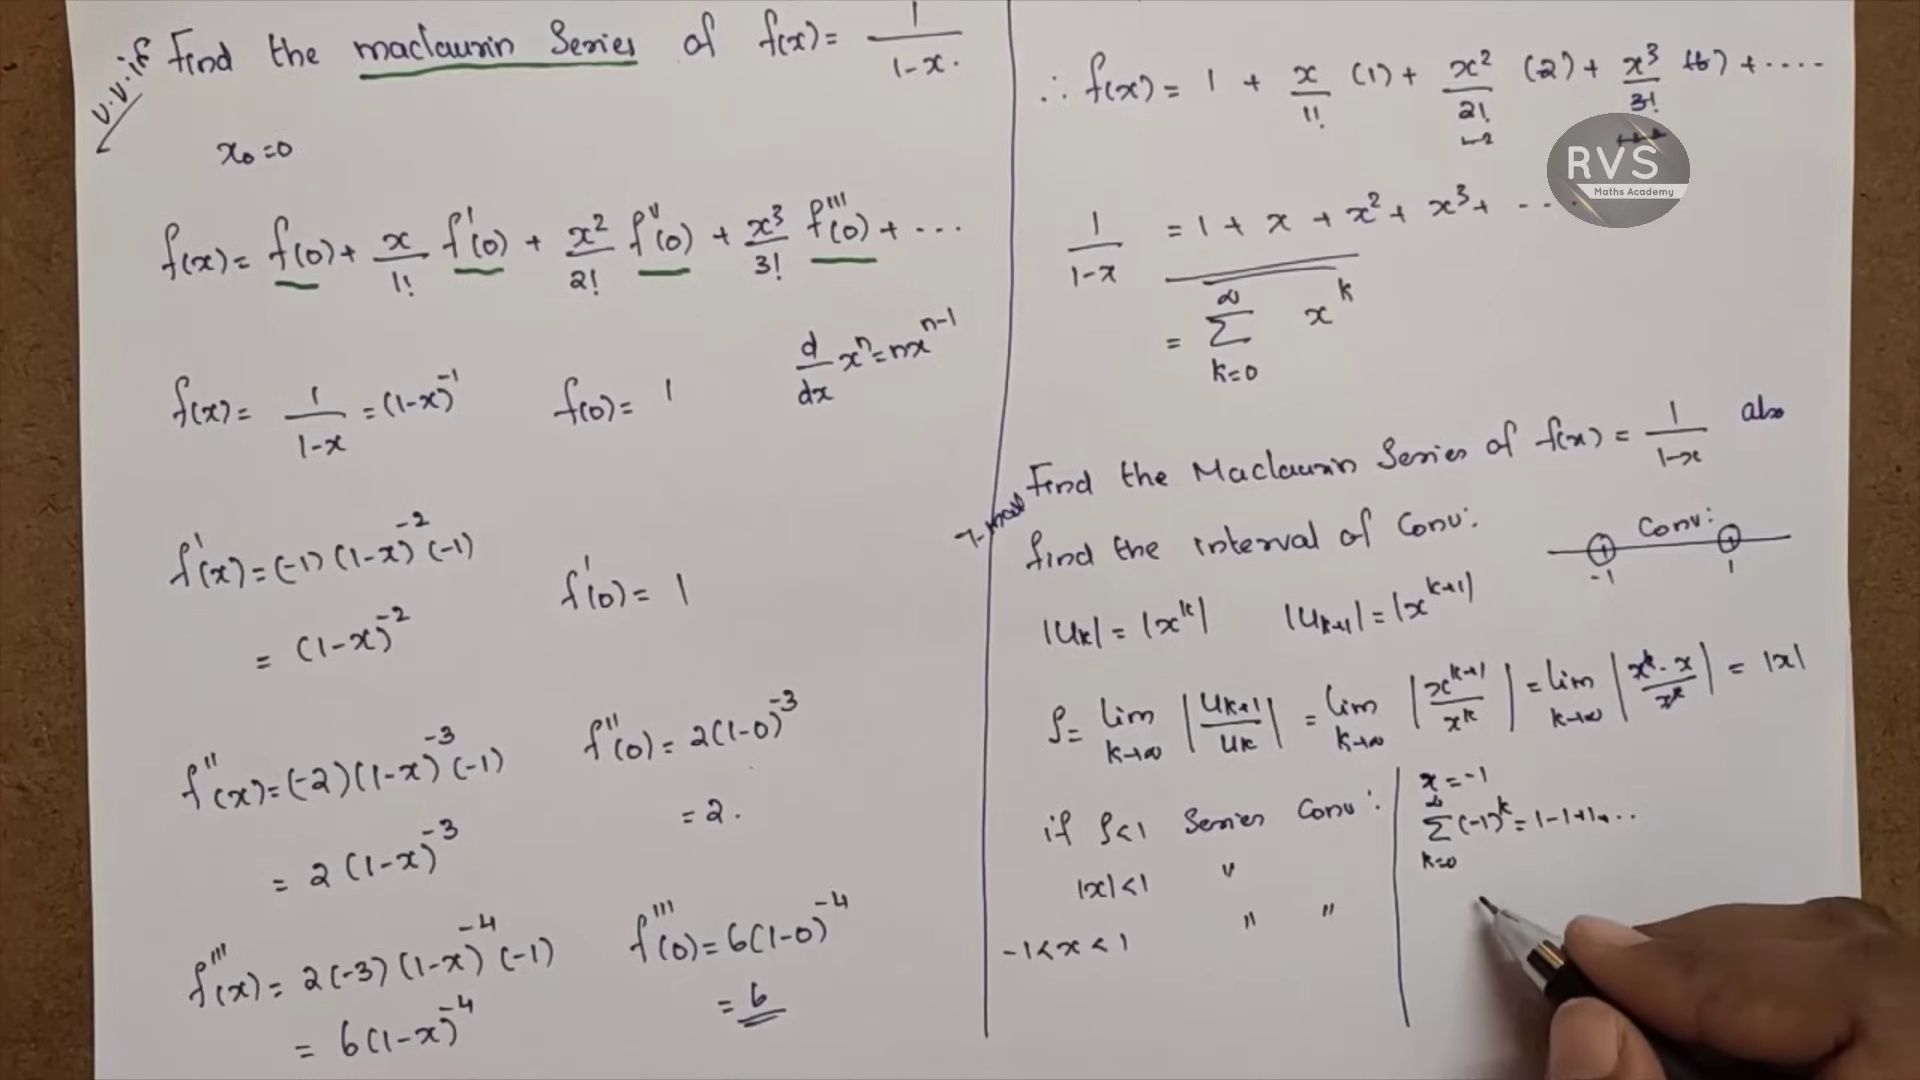 v.v.if Find the maclaurin Series of f(x) = 1/(1-x).
x₀ = 0
f(x) = f(0) + x/1! f'(0) + x²/2! f''(0) + x³/3! f'''(0) + ...
f(x) = 1/(1-x) = (1-x)⁻¹ f(0) = 1 d/dx xⁿ = nxⁿ⁻¹
f'(x) = (-1)(1-x)⁻²(-1) f'(0) = 1
= (1-x)⁻²
f''(x) = (-2)(1-x)⁻³(-1) f''(0) = 2(1-0)⁻³
= 2(1-x)⁻³ = 2.
f'''(x) = 2(-3)(1-x)⁻⁴(-1) f'''(0) = 6(1-0)⁻⁴
= 6(1-x)⁻⁴ = 6
∴ f(x) = 1 + x/1! (1) + x²/2! (2) + x³/3! (6) + ....
RVS
Maths Academy
1/(1-x) = 1 + x + x² + x³ + ...
= ∑ₖ₌₀^∞ xᵏ
Find the Maclaurin Series of f(x) = 1/(1-x) also
7-mark
find the interval of Conv:
Conv:
-1 1
|uₖ| = |xᵏ| |uₖ₊₁| = |xᵏ⁺¹|
ρ = lim k→∞ |uₖ₊₁/uₖ| = lim k→∞ |xᵏ⁺¹/xᵏ| = lim k→∞ |xᵏ·x/xᵏ| = |x|
if ρ<1 Series Conv:
|x|<1 "
-1<x<1 " "
x = -1
∑ₖ₌₀^∞ (-1)ᵏ = 1-1+1...